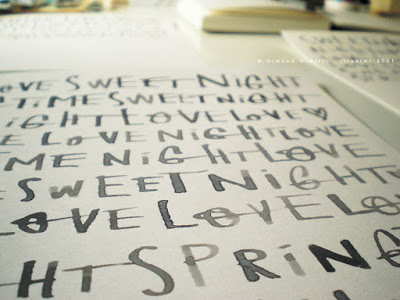 OVE SWEET NiGHT
TiME SWEET NiGHT
iGHT LOVE LOVE ♡
E LOVE NiGHT LOVE
ME NiGHT LOVE
E SWEET NiGHT
LOVE LOVE LOVE
HT SPRiNG